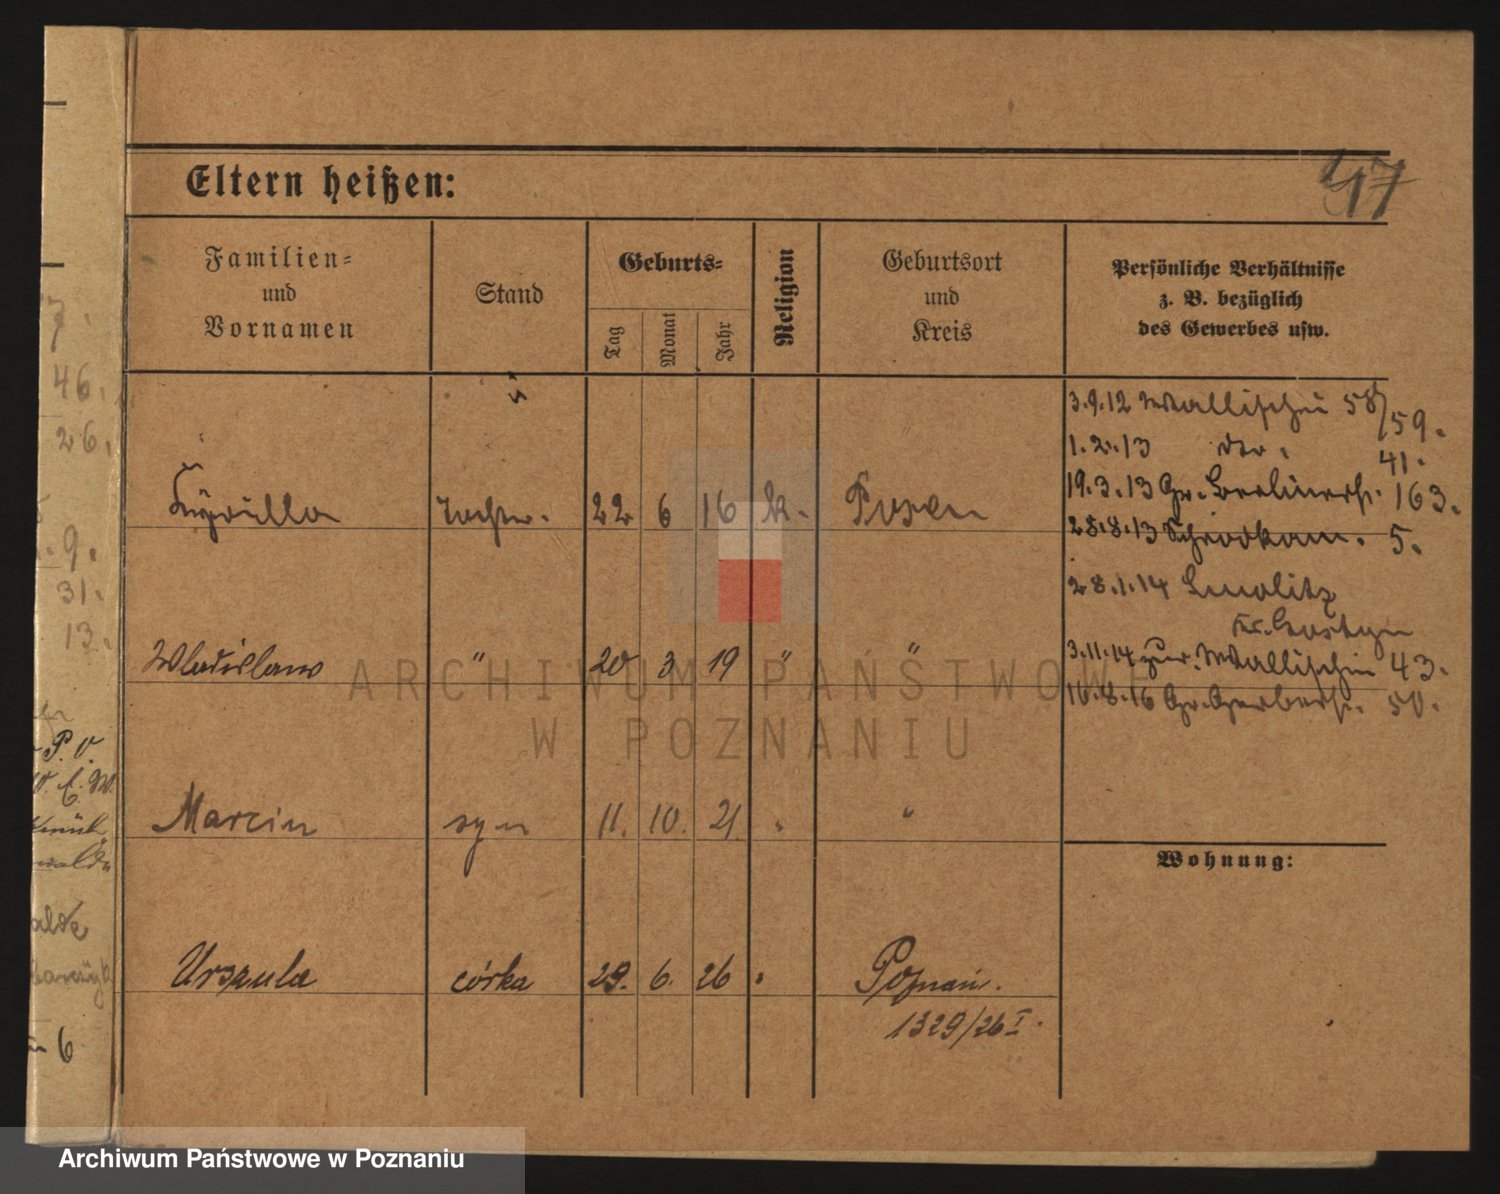 47
Eltern heißen:
Familien=
und
Vornamen
Stand
Geburts=
Tag
Monat
Jahr
Religion
Geburtsort
und
Kreis
Persönliche Verhältnisse
z. B. bezüglich
des Gewerbes usw.
3.9.12 Wallischei 58/59.
1.2.13 dto. 41.
19.3.13 Gr. Berlinerstr. 163.
28.8.13 Schrodkam. 5.
28.1.14 Smolitz
Kr. Gostyn
3.11.14 zur. Wallischei 43.
10.8.16 Gr. Gerberstr. 50.
Tochter. 22 6 16 k. Posen
Wladislaus " 20 3 19 " "
Marcin syn 11. 10. 21 " "
Wohnung:
Urszula córka 29. 6. 26 " Poznań.
1329/26 I.
7.
46.
26.
9.
31.
13.
P. V.
walde
alde
6
ARCHIWUM PAŃSTWOWE
W POZNANIU
Archiwum Państwowe w Poznaniu